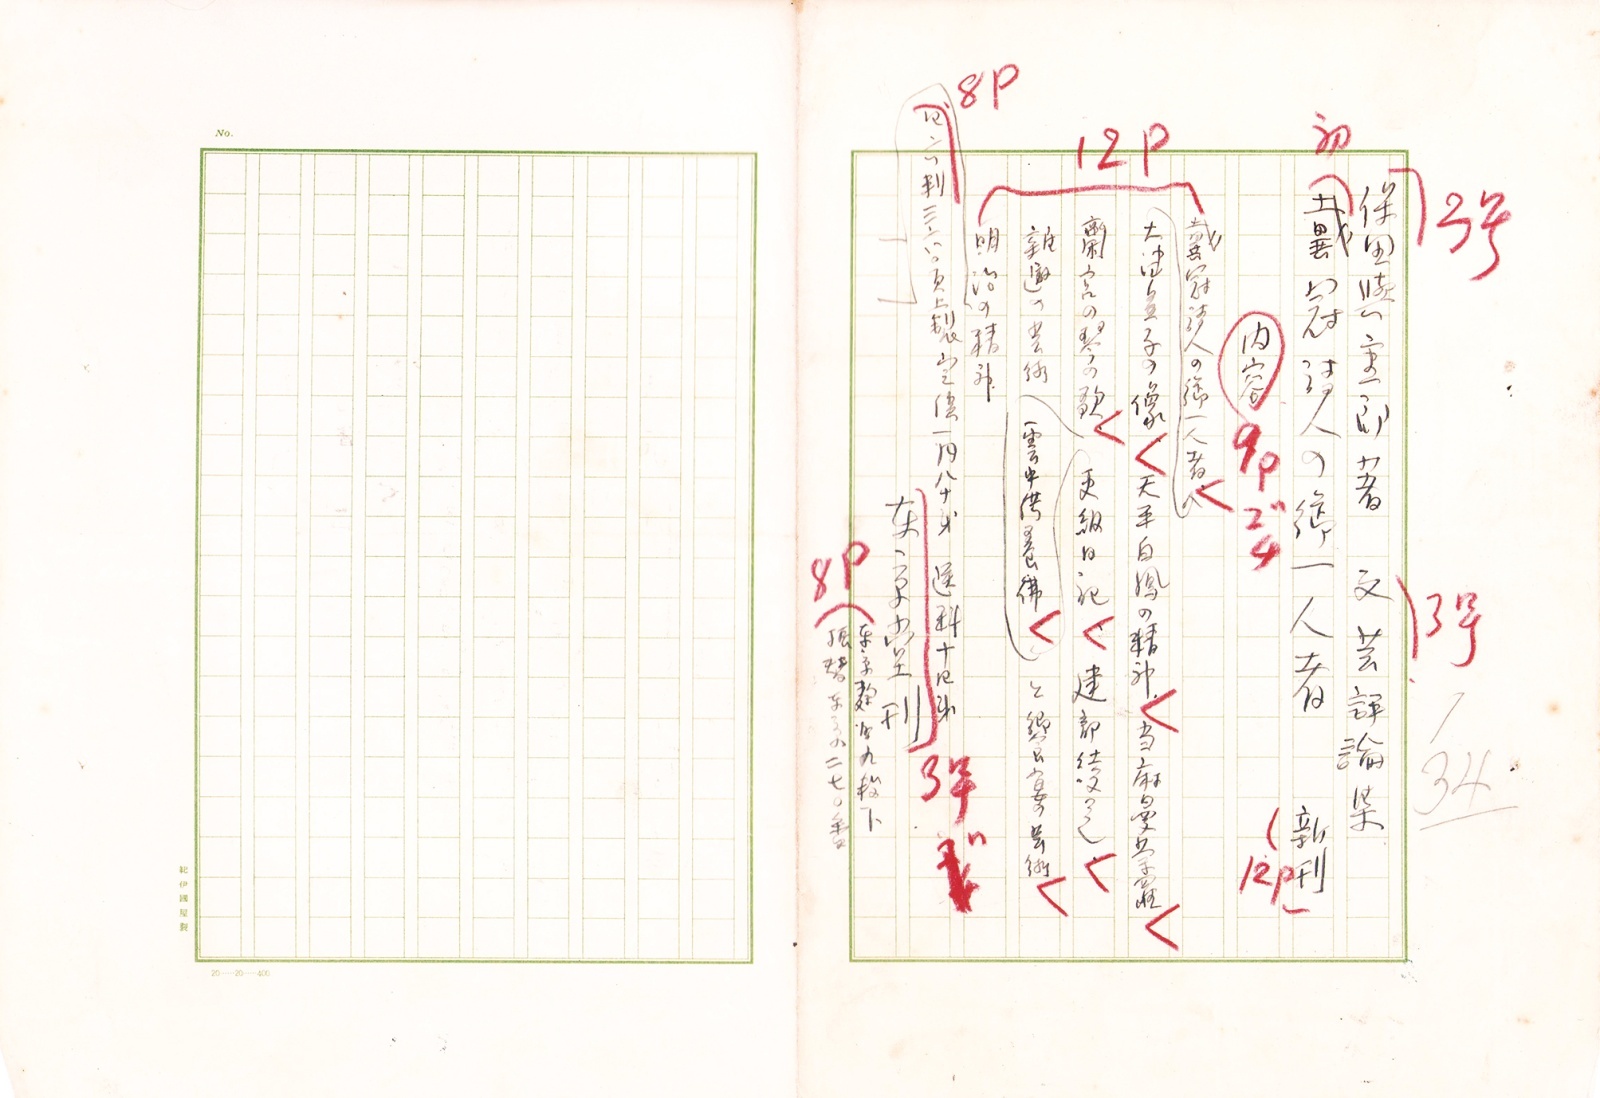 2号
保田與重郎著 文芸評論集
3号
34
初
戴冠詩人の御一人者 新刊
12P
内容
9Pゴ4
12P
戴冠詩人の御一人者
大津皇子の像 天平白鳳の精神 当麻曼荼羅
齋宮の琴の歌 更級日記 建部綾足
雑遊の芸術 雲中供養佛 と饗宴の芸術
明治の精神
8P
四六判三三〇頁上製定價一円八十銭 送料十四銭
東京堂刊
3号
8P
東京麹町九段下
振替東京二七〇番
No.
紀伊國屋製
20—20—400